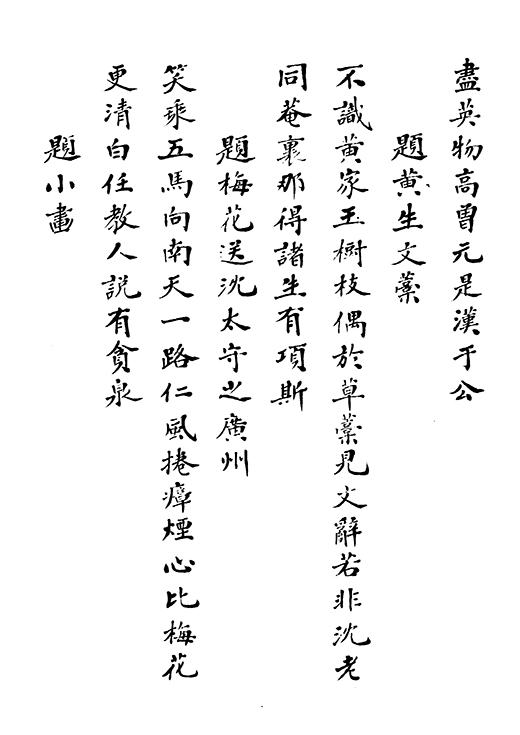 盡英物高曾元是漢于公
題黃生文藁
不識黃家玉樹枝偶於草藁見文辭若非沈老
同菴裏那得諸生有項斯
題梅花送沈太守之廣州
笑乘五馬向南天一路仁風捲瘴煙心比梅花
更清白任教人說有貪泉
題小畫